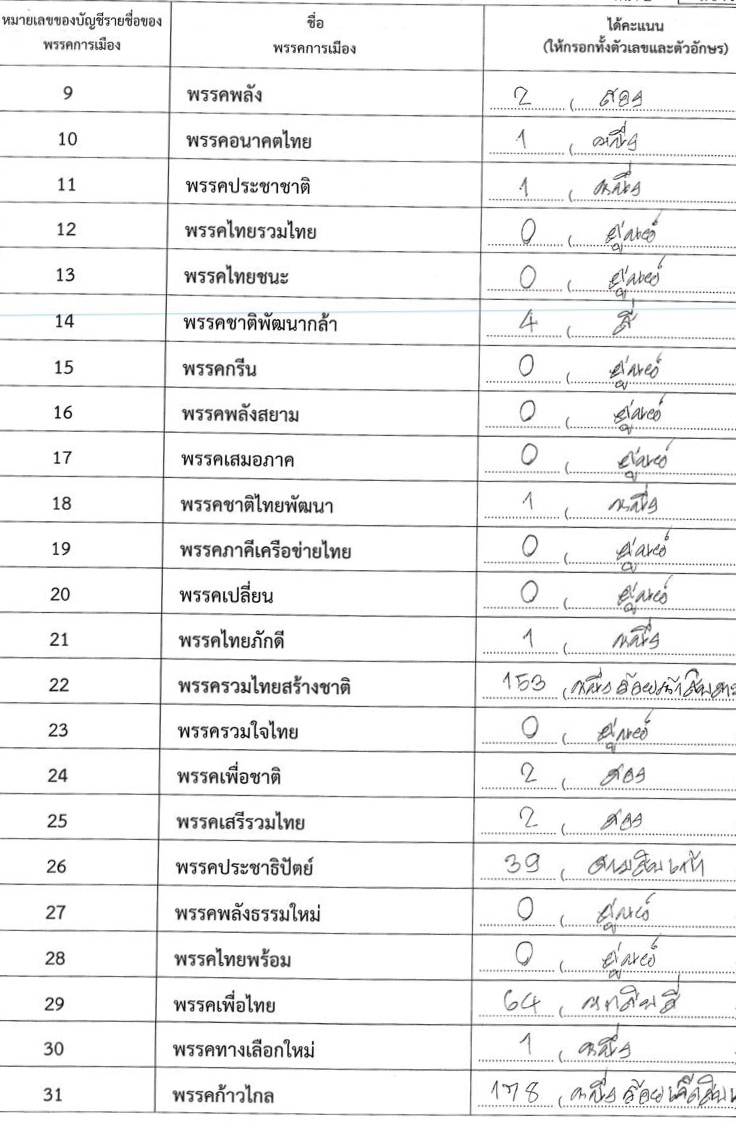 หมายเลขของบัญชีรายชื่อของ ชื่อ ได้คะแนน
พรรคการเมือง พรรคการเมือง (ให้กรอกทั้งตัวเลขและตัวอักษร)
9 พรรคพลัง 2 ( สอง
10 พรรคอนาคตไทย 1 ( หนึ่ง
11 พรรคประชาชาติ 1 ( หนึ่ง
12 พรรคไทยรวมไทย 0 ( ศูนย์
13 พรรคไทยชนะ 0 ( ศูนย์
14 พรรคชาติพัฒนากล้า 4 ( สี่
15 พรรคกรีน 0 ( ศูนย์
16 พรรคพลังสยาม 0 ( ศูนย์
17 พรรคเสมอภาค 0 ( ศูนย์
18 พรรคชาติไทยพัฒนา 1 ( หนึ่ง
19 พรรคภาคีเครือข่ายไทย 0 ( ศูนย์
20 พรรคเปลี่ยน 0 ( ศูนย์
21 พรรคไทยภักดี 1 ( หนึ่ง
22 พรรครวมไทยสร้างชาติ 153 (หนึ่งร้อยห้าสิบสาม
23 พรรครวมใจไทย 0 ( ศูนย์
24 พรรคเพื่อชาติ 2 ( สอง
25 พรรคเสรีรวมไทย 2 ( สอง
26 พรรคประชาธิปัตย์ 39 ( สามสิบเก้า
27 พรรคพลังธรรมใหม่ 0 ( ศูนย์
28 พรรคไทยพร้อม 0 ( ศูนย์
29 พรรคเพื่อไทย 64 ( หกสิบสี่
30 พรรคทางเลือกใหม่ 1 ( หนึ่ง
31 พรรคก้าวไกล 178 (หนึ่งร้อยเจ็ดสิบ